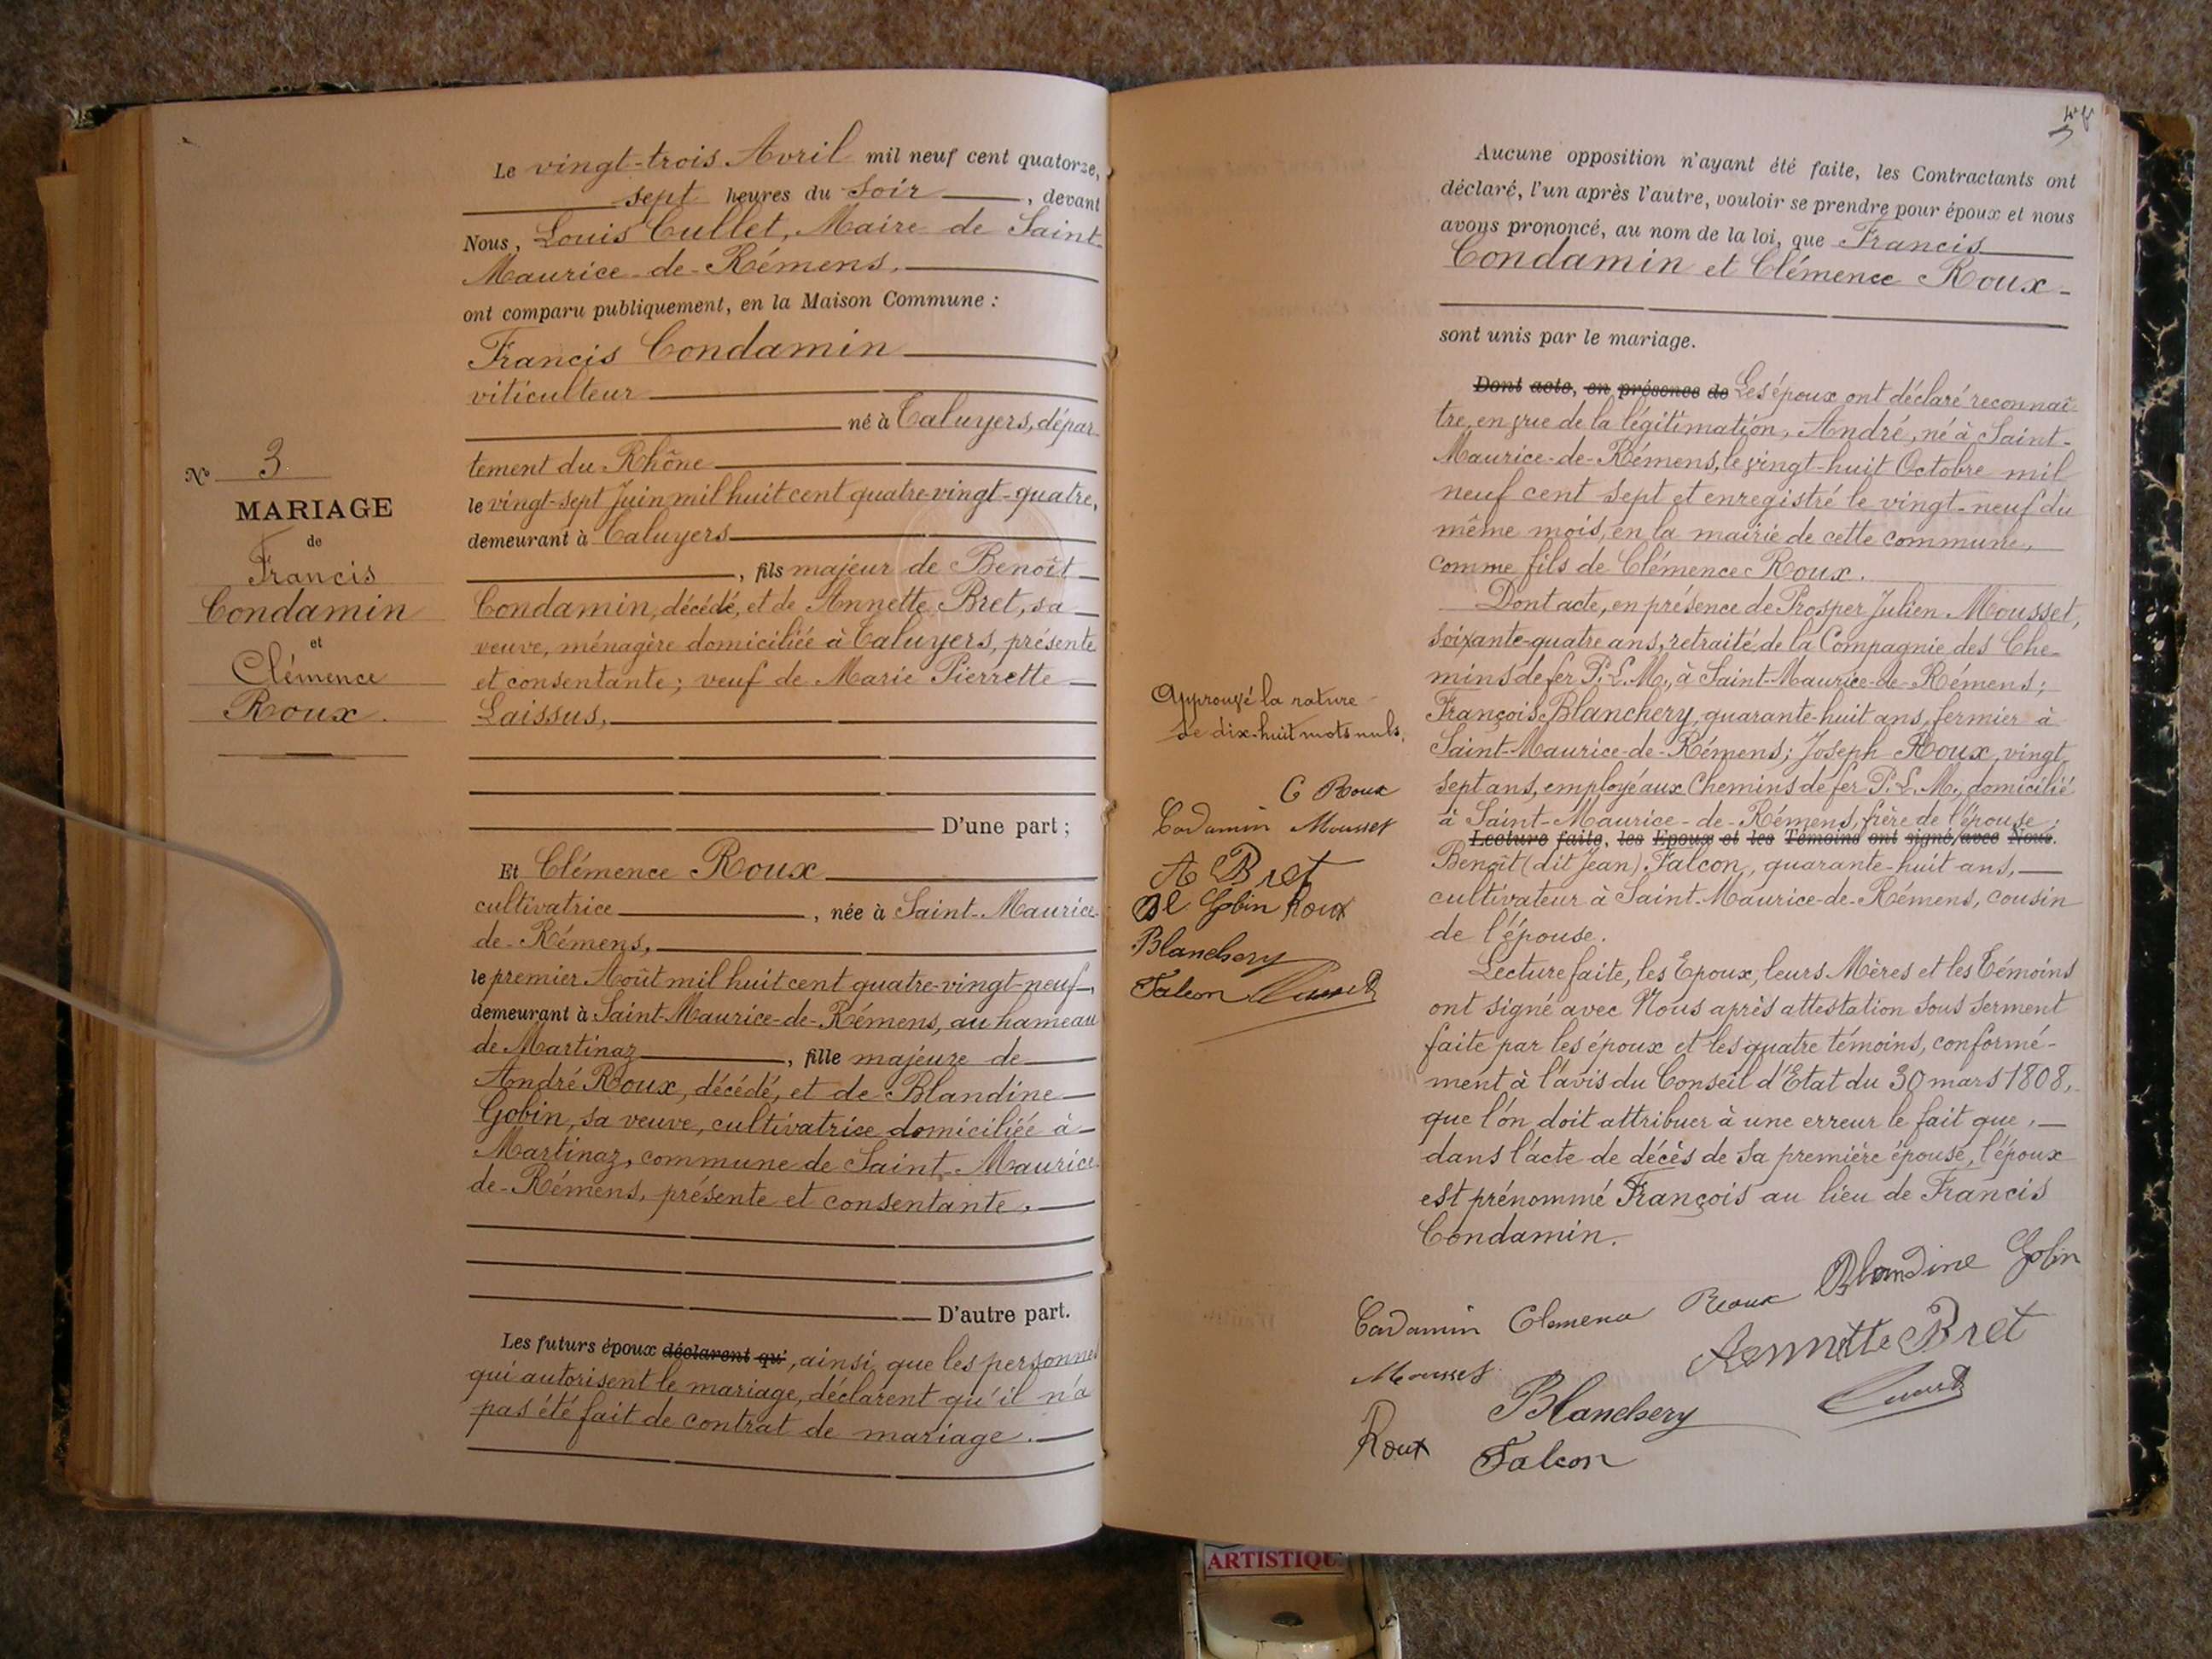 Nº 3
MARIAGE
de
Francis
Condamin
et
Clémence
Roux.
Le vingt-trois Avril mil neuf cent quatorze,
sept heures du soir, devant
Nous, Louis Cullet, Maire de Saint-
Maurice-de-Rémens,
ont comparu publiquement, en la Maison Commune :
Francis Condamin
viticulteur
né à Taluyers, dépar-
tement du Rhône
le vingt-sept Juin mil huit cent quatre-vingt-quatre,
demeurant à Taluyers
, fils majeur de Benoît
Condamin, décédé, et de Annette Bret, sa
veuve, ménagère domiciliée à Taluyers, présente
et consentante ; veuf de Marie Pierrette
Laissus,
D'une part ;
Et Clémence Roux
cultivatrice, née à Saint-Maurice-
de-Rémens,
le premier Août mil huit cent quatre-vingt-neuf,
demeurant à Saint-Maurice-de-Rémens, au hameau
de Martinaz, fille majeure de
André Roux, décédé, et de Blandine
Gobin, sa veuve, cultivatrice domiciliée à
Martinaz, commune de Saint-Maurice-
de-Rémens, présente et consentante.
D'autre part.
Les futurs époux déclarent qu', ainsi que les personnes
qui autorisent le mariage, déclarent qu'il n'a
pas été fait de contrat de mariage.
Aucune opposition n'ayant été faite, les Contractants ont
déclaré, l'un après l'autre, vouloir se prendre pour époux et nous
avons prononcé, au nom de la loi, que Francis
Condamin et Clémence Roux
sont unis par le mariage.
Dont acte, en présence de Les époux ont déclaré reconnaî-
tre, en vue de la légitimation, André, né à Saint-
Maurice-de-Rémens, le vingt-huit Octobre mil
neuf cent sept et enregistré le vingt-neuf du
même mois, en la mairie de cette commune,
comme fils de Clémence Roux.
Dont acte, en présence de Prosper Julien Mousset,
soixante-quatre ans, retraité de la Compagnie des Che-
mins de fer P.L.M., à Saint-Maurice-de-Rémens ;
François Blanchery, quarante-huit ans, fermier à
Saint-Maurice-de-Rémens ; Joseph Roux, vingt-
sept ans, employé aux Chemins de fer P.L.M., domicilié
à Saint-Maurice-de-Rémens, frère de l'épouse ;
Lecture faite, les Epoux et les Témoins ont signé avec Nous.
Benoît (dit Jean) Falcon, quarante-huit ans,
cultivateur à Saint-Maurice-de-Rémens, cousin
de l'épouse.
Lecture faite, les Epoux, leurs Mères et les Témoins
ont signé avec Nous après attestation sous serment
faite par les époux et les quatre témoins, conformé-
ment à l'avis du Conseil d'Etat du 30 mars 1808,
que l'on doit attribuer à une erreur le fait que,
dans l'acte de décès de sa première épouse, l'époux
est prénommé François au lieu de Francis
Condamin.
Approuvé la rature
de dix-huit mots nuls.
C Roux
Condamin Mousset
A Bret
Bl Gobin Roux
Blanchery
Falcon Cullet
Condamin Clemence Roux Blandine Gobin
Mousset Annette Bret
Blanchery Cullet
Roux Falcon
ARTISTIQU